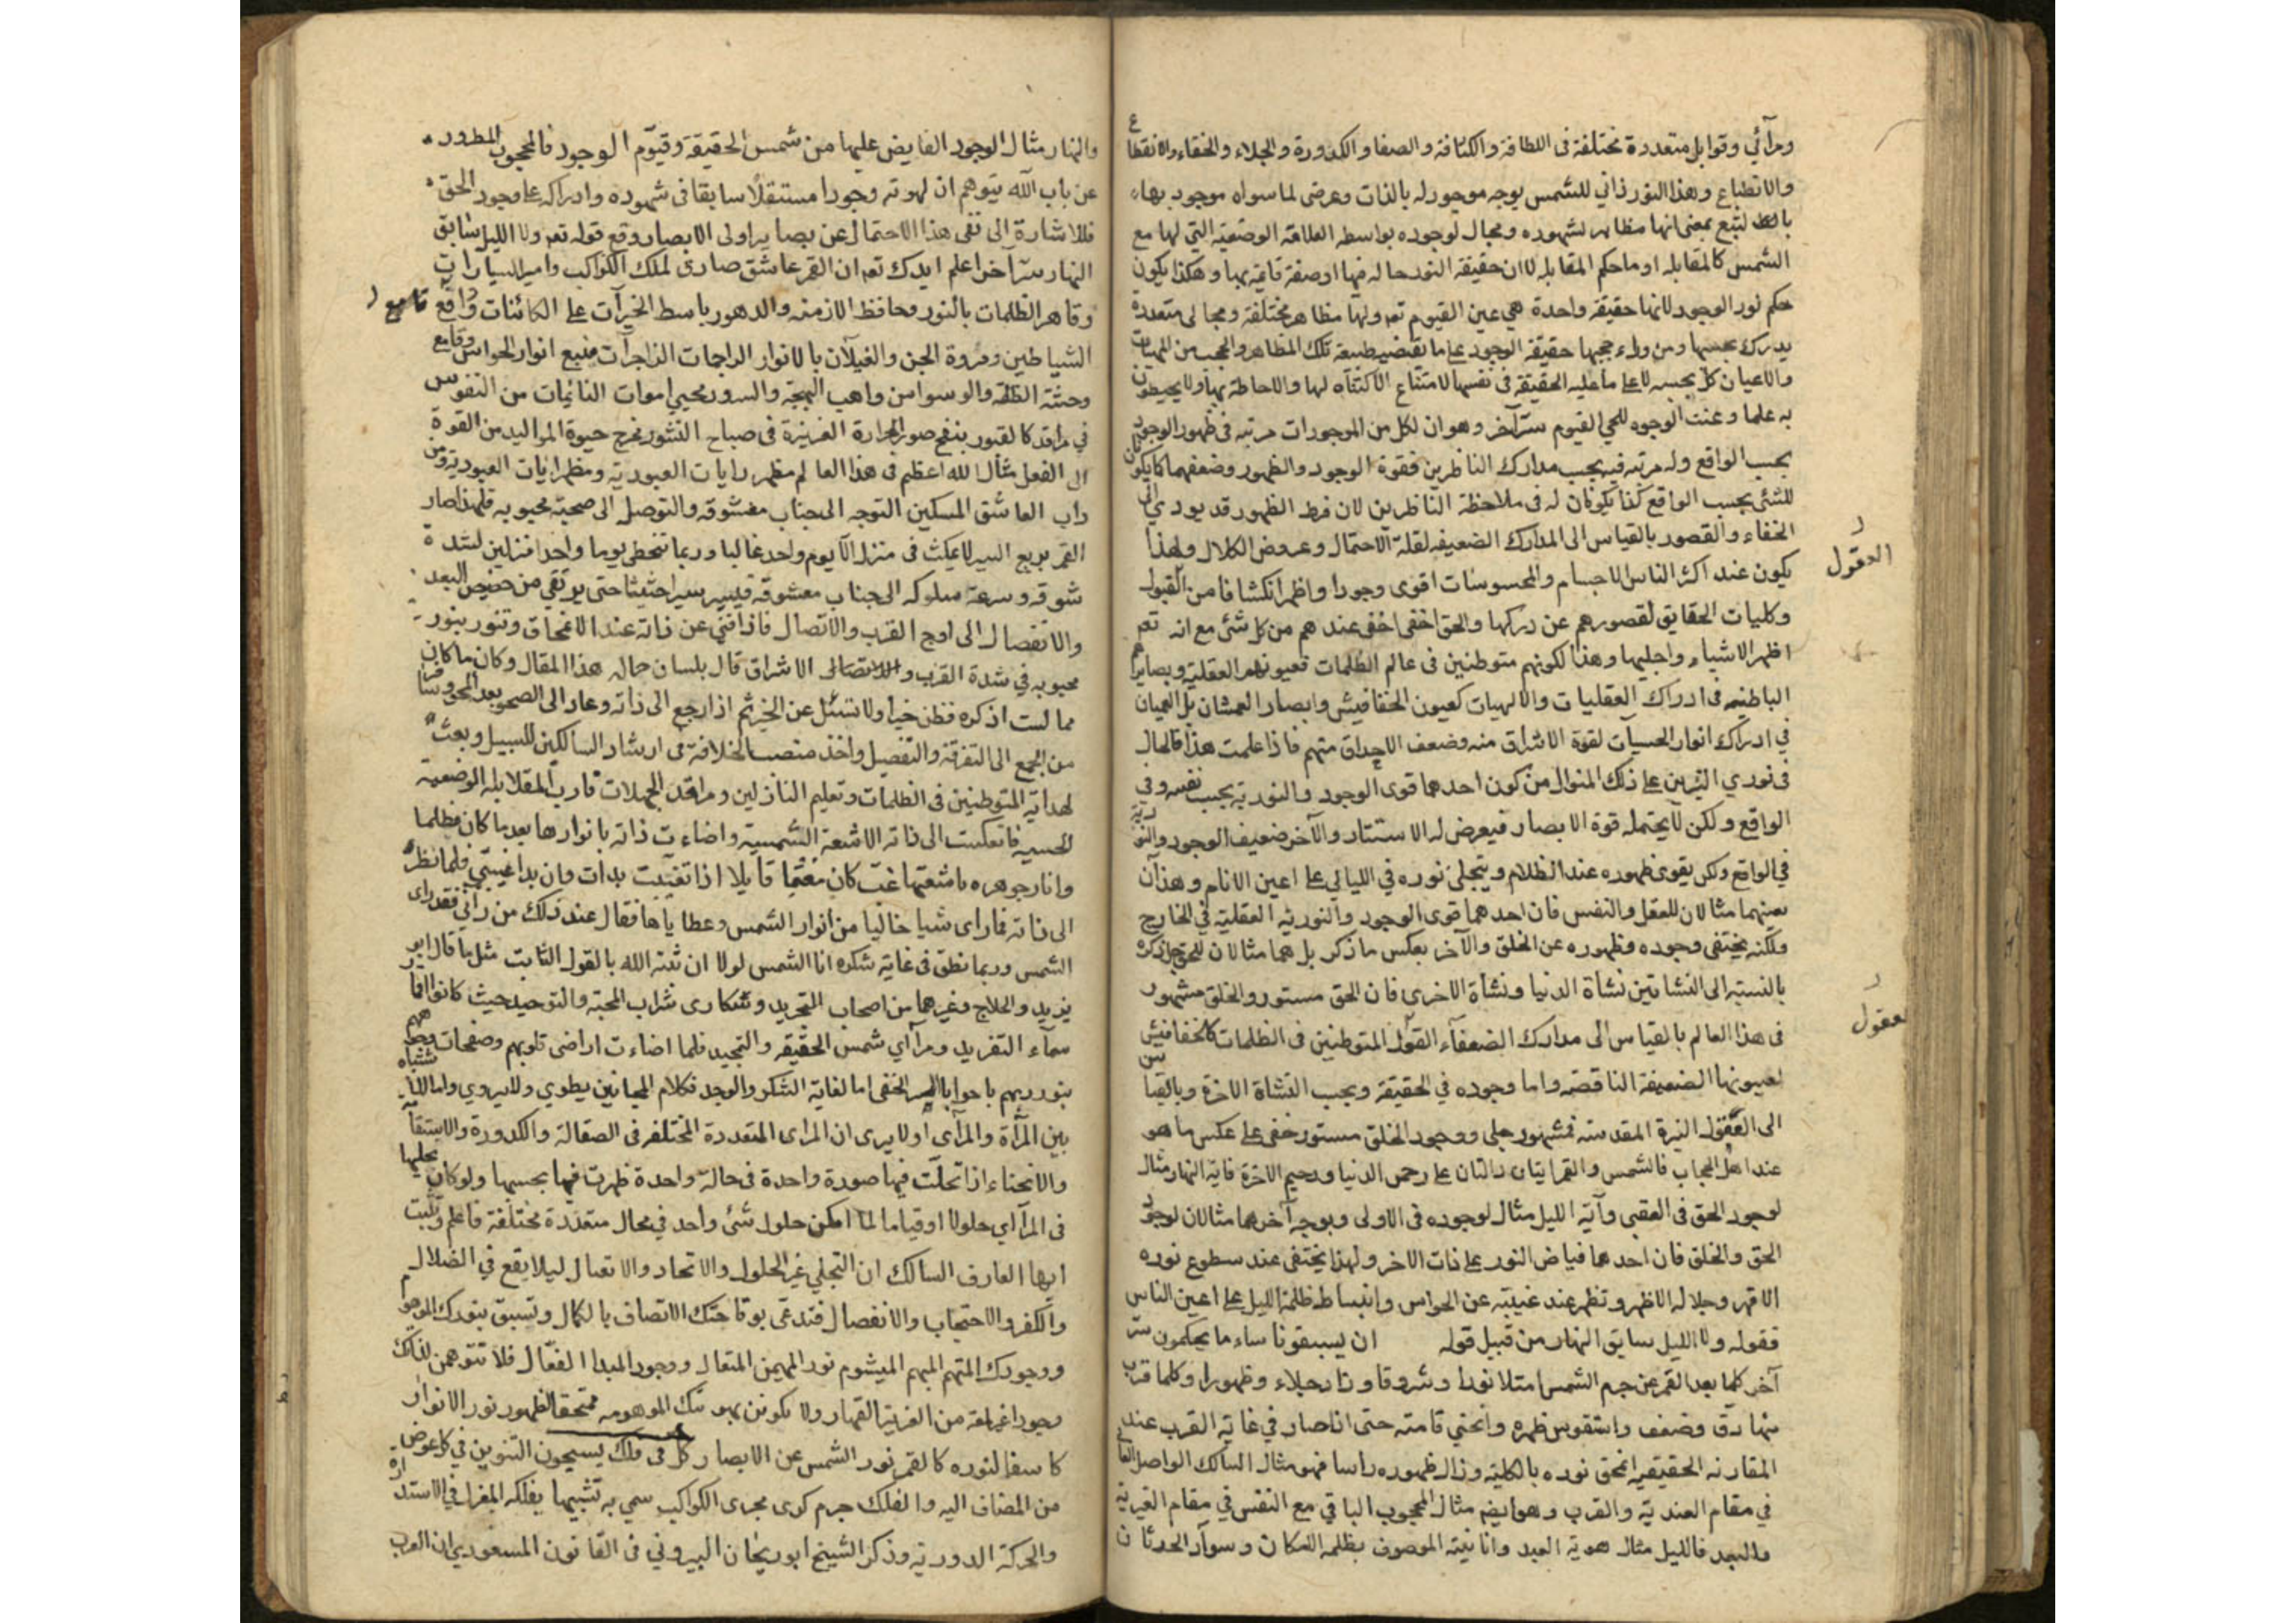 ومرآئي وقوابل متعددة مختلفة فى اللطافة والكثافة والصفا والكدورة والجلاء والخفاء والانقطاع
والانطباع وهذا النور ذاتي للشمس بوجه موجود له بالذات وعرضى لما سواه موجود بهاء
بالتبع بمعنى انها مظاهر لشهوده ومجال لوجوده بواسطه العلاقة الوضعية التي لها مع
الشمس كالمقابله او ما حكم المقابله لا ان حقيقة النور حاله فيها او صفة قايمة بها وهكذا يكون
حكم نور الوجود لانها حقيقة واحدة هي عين القيوم تعه ولها مظاهر مختلفة ومجالى متعددة
يدرك بحسبها ومن وراء حجبها حقيقة الوجود على ما تقتضيه طبيعة تلك المظاهر والحجب من المهيات
والاعيان كل بحسبه لا على ما عليه الحقيقة فى نفسها لامتناع الاكتناه لها والاحاطة بها ولا يحيطون
به علما وعنت الوجوه للحي القيوم سرّ آخر وهو ان لكل من الموجودات مرتبه فى ظهور الوجود
بحسب الواقع وله مرتبه فيه بحسب مدارك الناظرين فقوة الوجود والظهور وضعفهما كما يكونان
للشئ بحسب الواقع كذا يكونان له فى ملاحظة الناظرين لان فرط الظهور قد يودي الى
الخفاء والقصور بالقياس الى المدارك الضعيفه لقلة الاحتمال وعروض الكلال ولهذا
يكون عند اكثر الناس الاجسام والمحسوسات اقوى وجودا واظهر انكشافا من القبول
العقول
وكليات الحقايق لقصورهم عن دركها والحق اخفى اخفى عندهم من كل شئ مع انه تعه
اظهر الاشياء واجليها وهذا لكونهم متوطنين فى عالم الظلمات فعيونهم العقلية وبصايرهم
الباطنيه فى ادراك العقليات والالهيات كعيون الخفافيش وابصار العمشان بل العميان
في ادراك انوار الحسيات لقوة الاشراق منه وضعف الاحداق منهم فاذا علمت هذا فالحال
فى نوري النيرين على ذلك المنوال من كون احدهما قوى الوجود والنوريه بحسب نفسه وفي
الواقع ولكن لا يحتمله قوة الابصار فيعرض له الاستتار والآخر ضعيف الوجود والنورية
في الواقع ولكن يقوى ظهوره عند الظلام ويتجلى نوره في الليالي على اعين الانام وهذان
بعينهما مثالان للعقل والنفس فان احدهما قوى الوجود والنوريه العقلية في الخارج
ولكنه يختفى وجوده وظهوره عن الخلق والآخر بعكس ما ذكر بل هما مثالان للحق جل ذكره
بالنسبة الى النشاتين نشاة الدنيا ونشاة الاخرى فان الحق مستور والخلق مشهور
فى هذا العالم بالقياس الى مدارك الضعفاء القول المتوطنين فى الظلمات كالخفافيش
لعقول
لعيونها الضعيفة الناقصه واما وجوده في الحقيقة وبحسب النشاة الاخرة وبالقياس
الى العقول النيرة المقدسه فمشهور جلى ووجود الخلق مستور خفى على عكس ما هو
عند اهل الحجاب فالشمس والقمر ايتان دالتان على رحمن الدنيا ورحيم الاخرة فاية النهار مثال
لوجود الحق فى العقبى وآية الليل مثال لوجوده فى الاولى وبوجه آخر هما مثالان لوجود
الحق والخلق فان احدهما فياض النور على ذات الاخر ولهذا يختفى عند سطوع نوره
الاقهر وجلاله الاظهر وتظهر عند غيبته عن الحواس وانبساط ظلمة الليل على اعين الناس
فقوله ولا الليل سابق النهار من قبيل قوله ان يسبقونا ساء ما يحكمون سرّ
آخر كلما بعد القمر عن جرم الشمس امتلا نورا وشروقا وزاد جلاء وظهورا وكلما قرب
منها دق وضعف واستقوس ظهره وانحني قامته حتى اذا صار في غاية القرب عند
المقارنه الحقيقيه انمحق نوره بالكلية وزال ظهوره راسا فهو مثال السالك الواصل الفاني
في مقام العنديّة والقرب وهو ايضه مثال المحجوب الباقي مع النفس في مقام الغيرية
والبعد فالليل مثال هوية العبد وانانيته الموصوف بظلمه الامكان وسواد الحدثان
والنهار مثال الوجود الفايض عليها من شمس الحقيقة وقيّوم الوجود فالمحجوب المطرود
عن باب الله يتوهم ان لهوته وجودا مستقلا سابقا فى شهوده وادراكه على وجود الحق
فللاشارة الى نفى هذا الاحتمال عن بصاير اولى الابصار وقع قوله تعه ولا الليل سابق
النهار سرّ آخر اعلم ايدك تعه ان القمر عاشق صادق لملك الكواكب وامير السيارات
وقاهر الظلمات بالنور وحافظ الازمنه والدهور باسط الخيرات على الكائنات دافع قامع
الشياطين ومردة الجن والغيلان بالانوار الراجمات الزاجرات منبع انوار الحواس وقامع
وحشة الظلمة والوسواس واهب البهجة والسرور محيي اموات النائمات من النفوس
في مراقد كالقبور بنفح صور الحرارة الغريزة فى صباح النشور مخرج حيوة المواليد من القوة
الى الفعل مثال الله اعظم فى هذا العالم مظهر رايات العبودية ومظهر ايات العبودية ومن
داب العاشق المسكين التوجه الى جناب معشوقه والتوصل الى صحبة محبوبه فلهذا صار
القمر سريع السير لا يمكث فى منزل الا يوم واحد غالبا وربما تخطى يوما واحدا منزلين لشدة
شوقه وسرعة سلوكه الى جناب معشوقه فيسير سيرا حثيثا حتى يرتقي من حضيض البعد
والانفصال الى اوج القرب والاتصال فاذا فنى عن ذاته عند الانمحاق وتنور بنور
محبوبه في شدة القرب والاتصال الاشراق قال بلسان حاله هذا المقال وكان ما كان
مما لست اذكره فظن خيرا ولا تسئل عن الخبر ثم اذا رجع الى ذاته وعاد الى الصحو بعد المحو وسافر
من الجمع الى التفرقة والتفصيل واخذ منصب الخلافة فى ارشاد السالكين للسبيل وبعث
لهداية المتوطنين فى الظلمات وتعليم النازلين ومراقد الجهلات قارب المقابله الوضعية
الحسيه فانعكست الى ذاته الاشعة الشمسية واضاءت ذاته بانوارها بعد ما كان مظلما
وانار جوهره باشعتها غب كان مغتما قايلا اذا تغيبت بدات وان بدا غيبتي فلما نظر
الى ذاته فما راى شيا خاليا من انوار الشمس وعطاياها فقال عند ذلك من رآني فقد راى
الشمس وربما نطق فى غاية شكره انا الشمس لولا ان ثبته الله بالقول الثابت مثل ما قال ابو
يزيد والحلاج وغيرهما من اصحاب التجريد وسكارى شراب المحبة والتوحيد حيث كانوا اقمار
سمآء التفريد ومرآاي شمس الحقيقه والتمجيد فلما اضاءت اراضى قلوبهم وصفحات وجههم
بنور ربهم باحوا بالسر الخفى اما لغاية السكر والوجد فكلام المجانين يطوي ولا يروي واما للاشتباه
بين المرأة والمرآي اولا يرى ان المراى المتعددة المختلفه فى الصقالة والكدورة والاستقامة
والانحناء اذا تجلّت فيها صورة واحدة فى حالة واحدة ظهرت فيها بحسبها ولو كان تجليها
فى المرآاي حلولا او قياما لما امكن حلول شئ واحد في محال متعددة مختلفة فاعلم وتثبت
ايها العارف السالك ان التجلي غير الحلول والاتحاد والاتصال ليلا يقع في الضلال
والكفر والاحتجاب والانفصال فتدعى بوقاحتك الاتصاف بالكمال وتسبق بنورك الموهوم
ووجودك المتهم المبهم الميشوم نور المهيمن المتعال ووجود المبدا الفعّال فلا تتوهمن لذلك
وجودا غير لمعة من العزيز القهار ولا تكونن بهويتك الموهومه ممتحقا لظهور نور الانوار
كاسفا لنوره كالقمر نور الشمس عن الابصار كل فى فلك يسبحون التنوين في كل عوض
من المضاف اليه والفلك جرم كرى مجرى الكواكب سمي به تشبيها بفلكه المغزل في الاستدارة
والحركة الدورية وذكر الشيخ ابو ريحان البيروني فى القانون المسعودي ان العرب